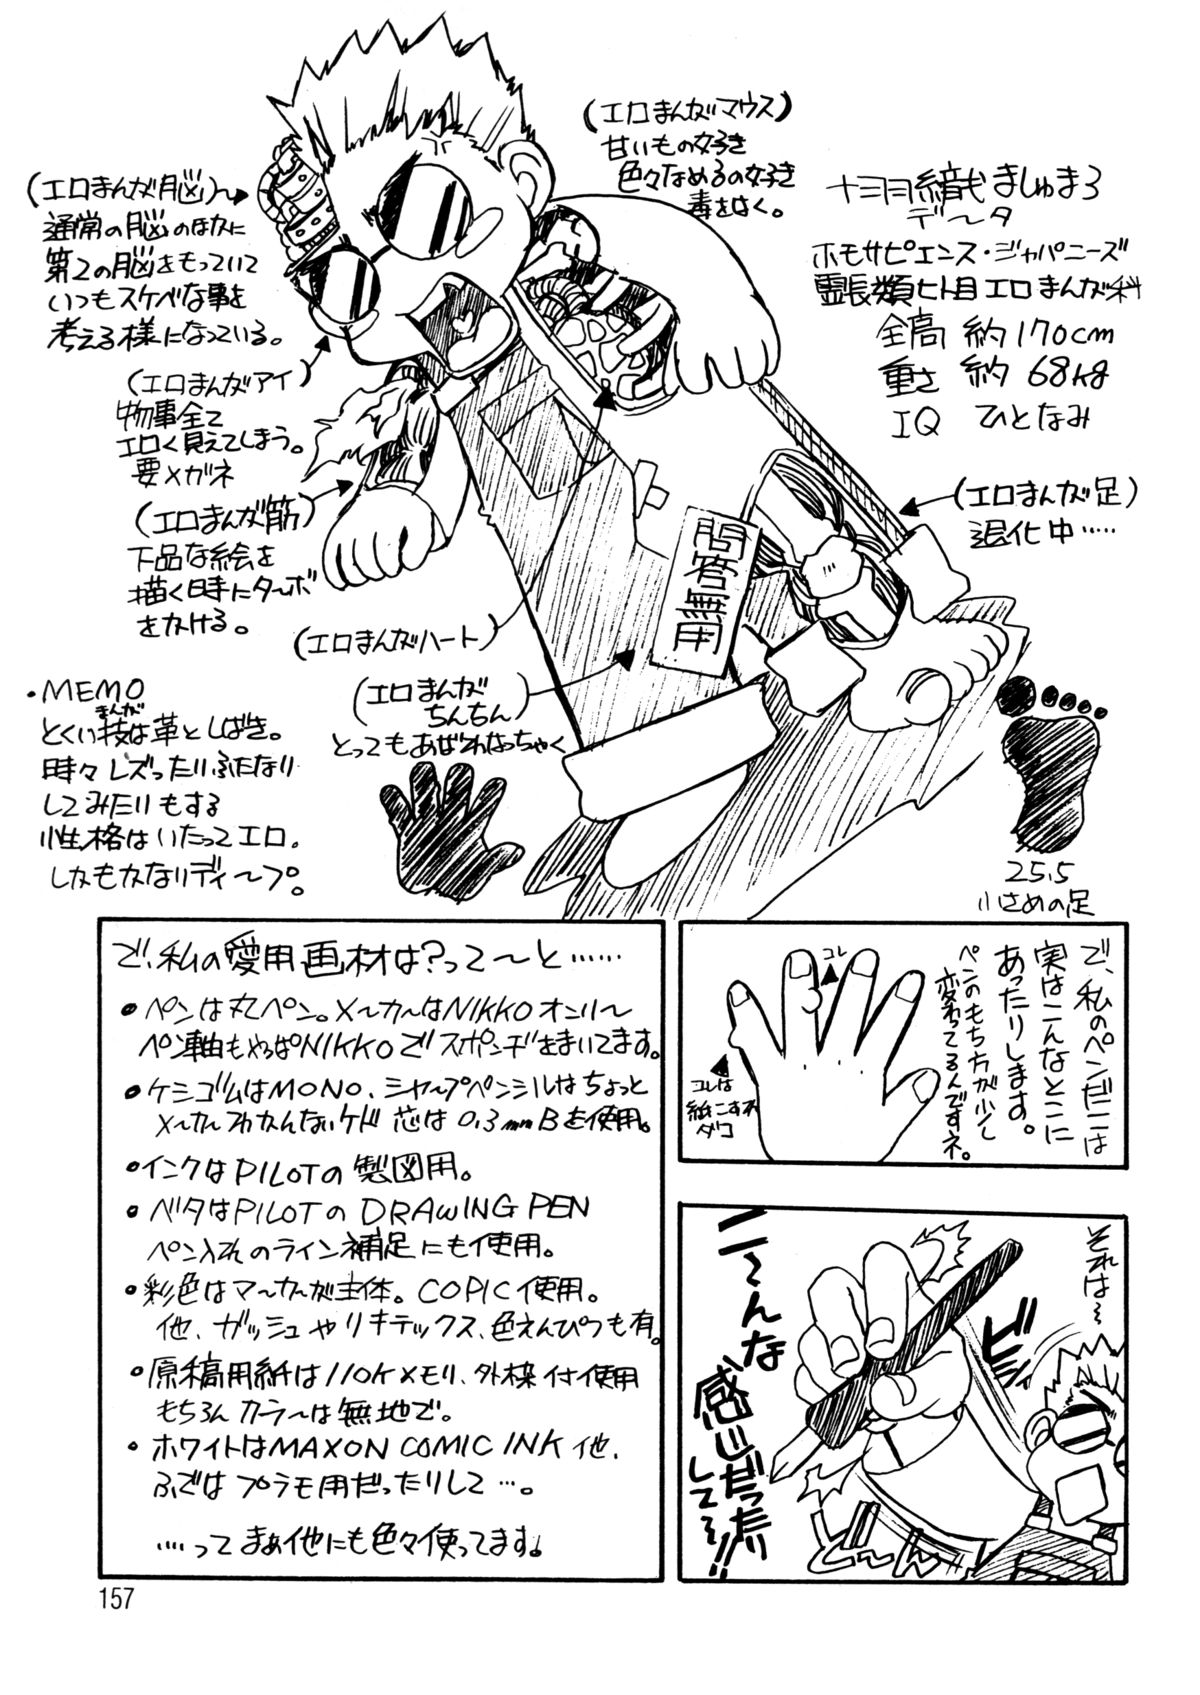 (エロまんがマウス)
甘いもの好き
色々なめるの好き
毒をはく。
ましゅまろ
データ
ホモサピエンス・ジャパニーズ
霊長類ヒト目エロまんが科
全高 約170cm
重さ 約68kg
IQ ひとなみ
(エロまんが脳)
通常の脳のほかに
第2の脳をもっていて
いつもスケベな事を
考える様になっている。
(エロまんがアイ)
物事全て
エロく見えてしまう。
要メガネ
(エロまんが筋)
下品な絵を
描く時にターボ
をかける。
(エロまんがハート)
(エロまんが足)
退化中……
問答無用
(エロまんが
ちんちん)
とってもあばれなっちゃく
・MEMO
まんが
とくい技は革としばき。
時々レズったりふたなり
してみたりもする
性格はいたってエロ。
しかもかなりディープ。
25.5
小さめの足
で、私の愛用画材は?って〜と……
●ペンは丸ペン。メーカーはNIKKOオンリー
ペン軸もやっぱNIKKOでスポンヂをまいてます。
●ケシゴムはMONO、シャープペンシルはちょっと
メーカーわかんないケド 芯は0.3mmBを使用。
●インクはPILOTの製図用。
●ベタはPILOTのDRAWING PEN
ペン入れのライン補足にも使用。
●彩色はマーカーが主体。COPIC使用。
他、ガッシュやリキテックス、色えんぴつも有。
●原稿用紙は110Kメモリ、外枠付使用
もちろんカラーは無地で。
●ホワイトはMAXON COMIC INK他、
ふではプラモ用だったりして…。
……ってまぁ他にも色々使ってます。
で、私のペンだこは
実はこんなとこに
あったりします。
ペンのもち方が少し
変わってるんですネ。
コレ
コレは
紙こすれ
ダコ
それは〜
ビシ
ニ〜んな
感じだったり
して〜!!
157